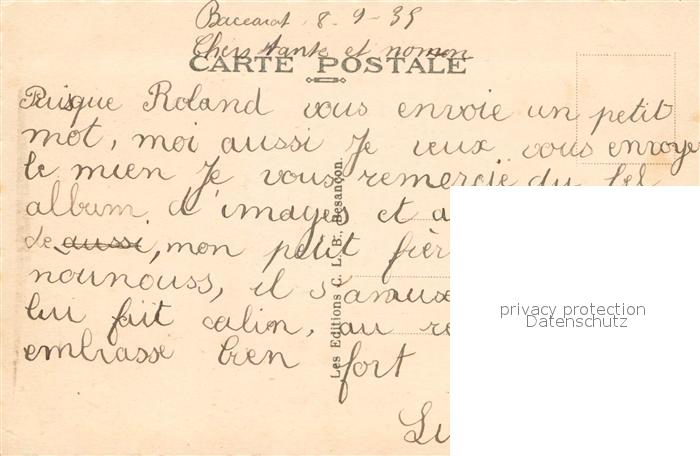 Baccarat 8-9-35
Chers tante et nonon
CARTE POSTALE
Puisque Roland vous envoie un petit
mot, moi aussi je veux vous envoye
le mien Je vous remercie du bel
album d'images et a
de aussi, mon petit frèr
nounouss, il s'amus
lui fait calin, au re
embrasse bien fort
Les Editions C. L. B., Besançon.
privacy protection
Datenschutz